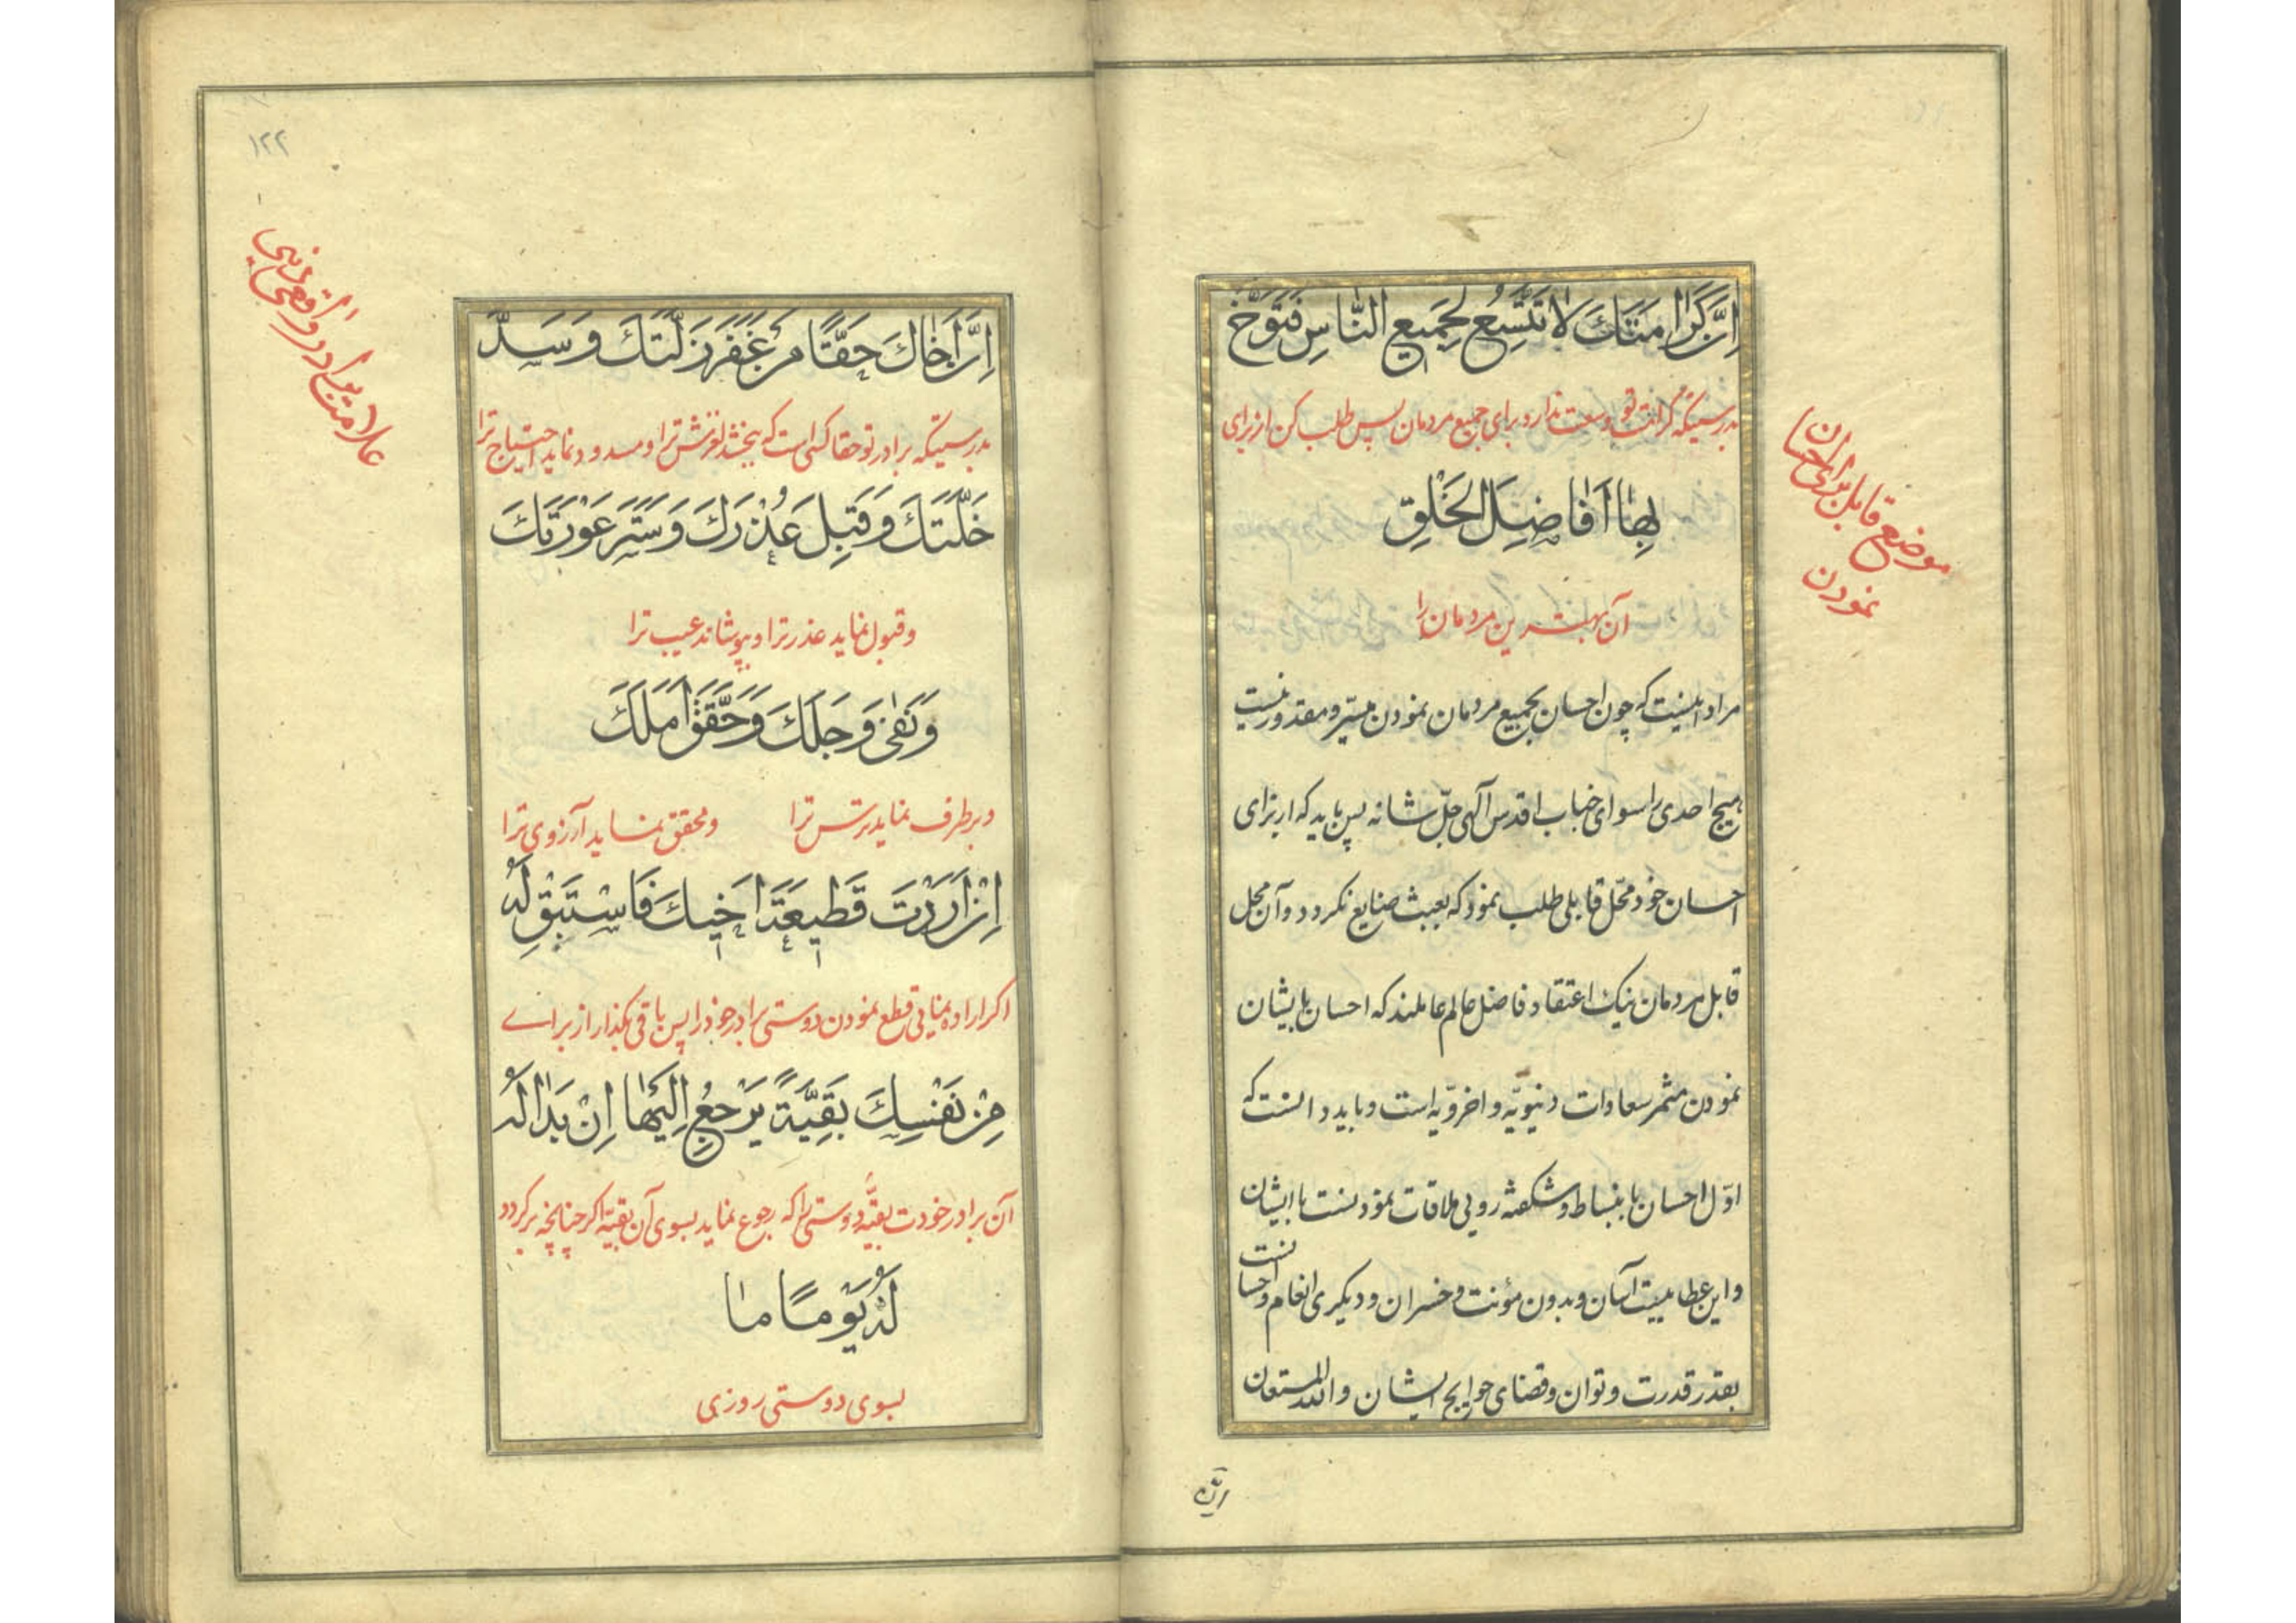 اِنَّ كَرٰامَتَكَ لاٰ تَتَّسِعُ لِجَمیعِ النّٰاسِ فَتَوَخَّ
بدرستیکه کرامت تو وسعت ندارد برای جمیع مردمان پس طلب کن از برای
بِهٰا اَفٰاضِلَ الخَلْقِ
آن بهترین مردمان را
مراد اینست که چون احسان بجمیع مردمان نمودن میسّر و مقدور نیست
هیچ احدی را سوای جناب اقدس آلهی جلّ شانه پس باید که از برای
احسان خود محّل قابلی طلب نمود که بعبث ضایع نکردد و آن محل
قابل مردمان نیک اعتقاد فاضل عالم عاملند که احسان بایشان
نمودن مثمر سعادات دنیویّه و اخرویّه است و باید دانست که
اوّل احسان بانبساط و شکفته رویی ملاقات نمودنست باایشان
و این عطاییست آسان و بدون مؤنت و خسران و دیکری انعام و احسانست
بقدر قدرت و توان و قضای حوایج ایشان و الله المستعان
موضع قابل برای احسان
نمودن
۱۲۲
اِنَّ اَخٰاكَ حَقًّا مَنْ غَفَرَ زَلَّتَكَ وَ سَدَّ
بدرستیکه برادر تو حقا کسی است که ببخشد لغزش ترا و مسدود نماید احتیاج ترا
خَلَّتَكَ وَ قَبِلَ عُذْرَكَ وَ سَتَرَ عَوْرَتَكَ
و قبول نماید عذر ترا و بپوشاند عیب ترا
وَ نَفٰی وَجَلَكَ وَ حَقَّقَ اَمَلَكَ
و برطرف نماید ترس ترا و محقق نماید آرزوی ترا
اِنْ اَرَدْتَ قَطیعَةَ اَخیكَ فَاسْتَبْقِ لَهُ
اکر اراده نمایی قطع نمودن دوستی برادر خود را پس باقی بکذار از برای
مِنْ نَفْسِكَ بَقِیَّةً یَرْجِعُ اِلَیْهٰا اِنْ بَدٰا لَهُ
آن برادر خودت بقیّهٔ دوستی را که رجوع نماید بسوی آن بقیّه اکر چنانچه برکردد
لَهُ یَوْمًا مٰا
بسوی دوستی روزی